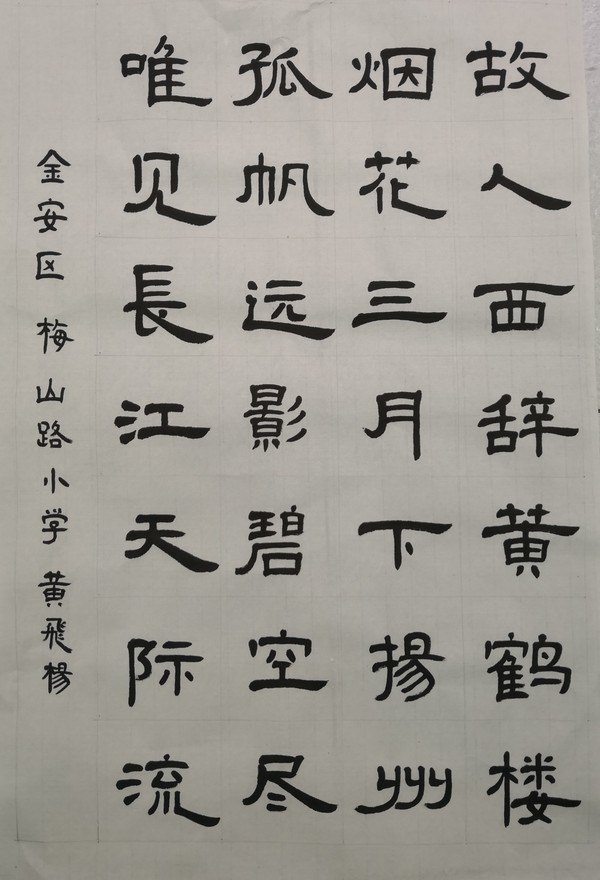 故人西辞黄鹤楼
烟花三月下揚州
孤帆远影碧空尽
唯见長江天际流
金安区 梅山路小学 黄飛楊